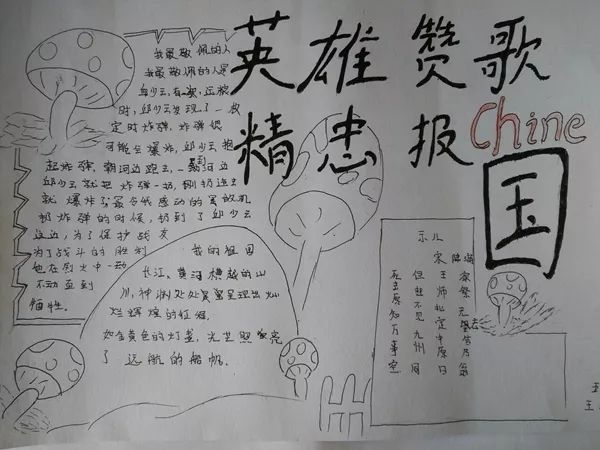 英雄赞歌
精忠报国
Chine
我最敬佩的人
我最敬佩的人是
邱少云,有一次,在操
时,邱少云发现了一枚
定时炸弹,炸弹很
可能会爆炸,邱少云抱
起炸弹,朝河边跑去,到河边
邱少云就把炸弹一扔,刚扔进去
就爆炸了最令我感动的是敌机
扔炸弹的时候,扔到了邱少云
这边,为了保护战友
为了战斗的胜利
他在烈火中一动
不动直到
牺牲。
我的祖国
长江、黄河横越的山
川,神洲处处
呈现出灿
烂辉煌的征程
如金黄色的灯盏,光芒照亮
了远航的船帆。
示儿
陆游
死去原知万事空
但悲不见九州同
王师北定中原日
家祭无忘告乃翁